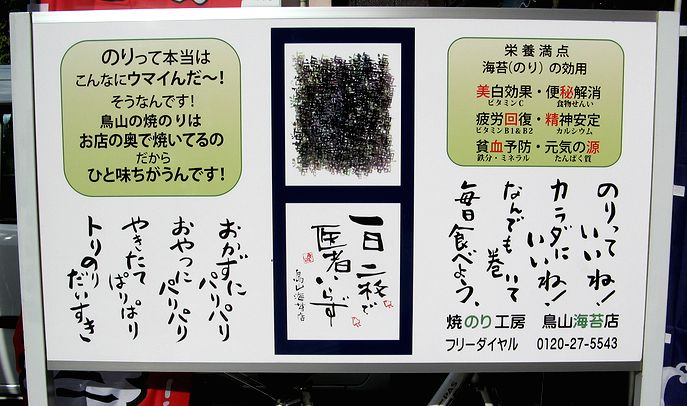 のりって本当は
こんなにウマイんだ〜！
そうなんです！
鳥山の焼のりは
お店の奥で焼いてるの
だから
ひと味ちがうんです！
おかずに
パリパリ
おやつに
パリパリ
やきたて
ぱりぱり
トリのり
だいすき
一日二枚で
医者いらず
鳥山海苔店
栄養満点
海苔(のり)の効用
美白効果・便秘解消
ビタミンC 食物せんい
疲労回復・精神安定
ビタミンB1&B2 カルシウム
貧血予防・元気の源
鉄分・ミネラル たんぱく質
のりって
いいね！
カラダに
いいね！
なんでも
巻いて
毎日食べよう、
焼のり工房 鳥山海苔店
フリーダイヤル 0120-27-5543